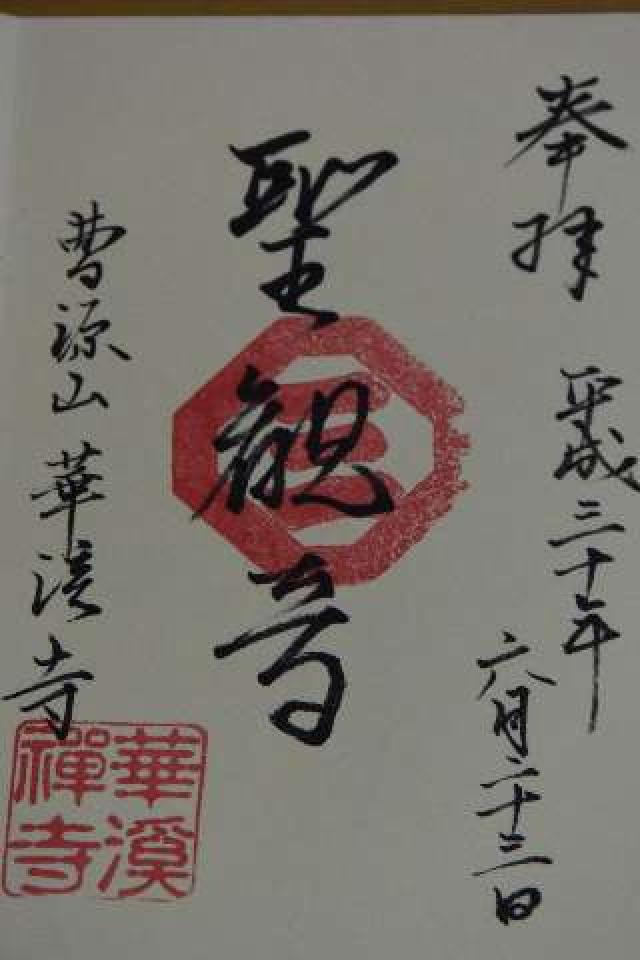 奉拝
平成三十年
六月二十三日
聖観音
曹源山 華渓寺
華溪
禪寺